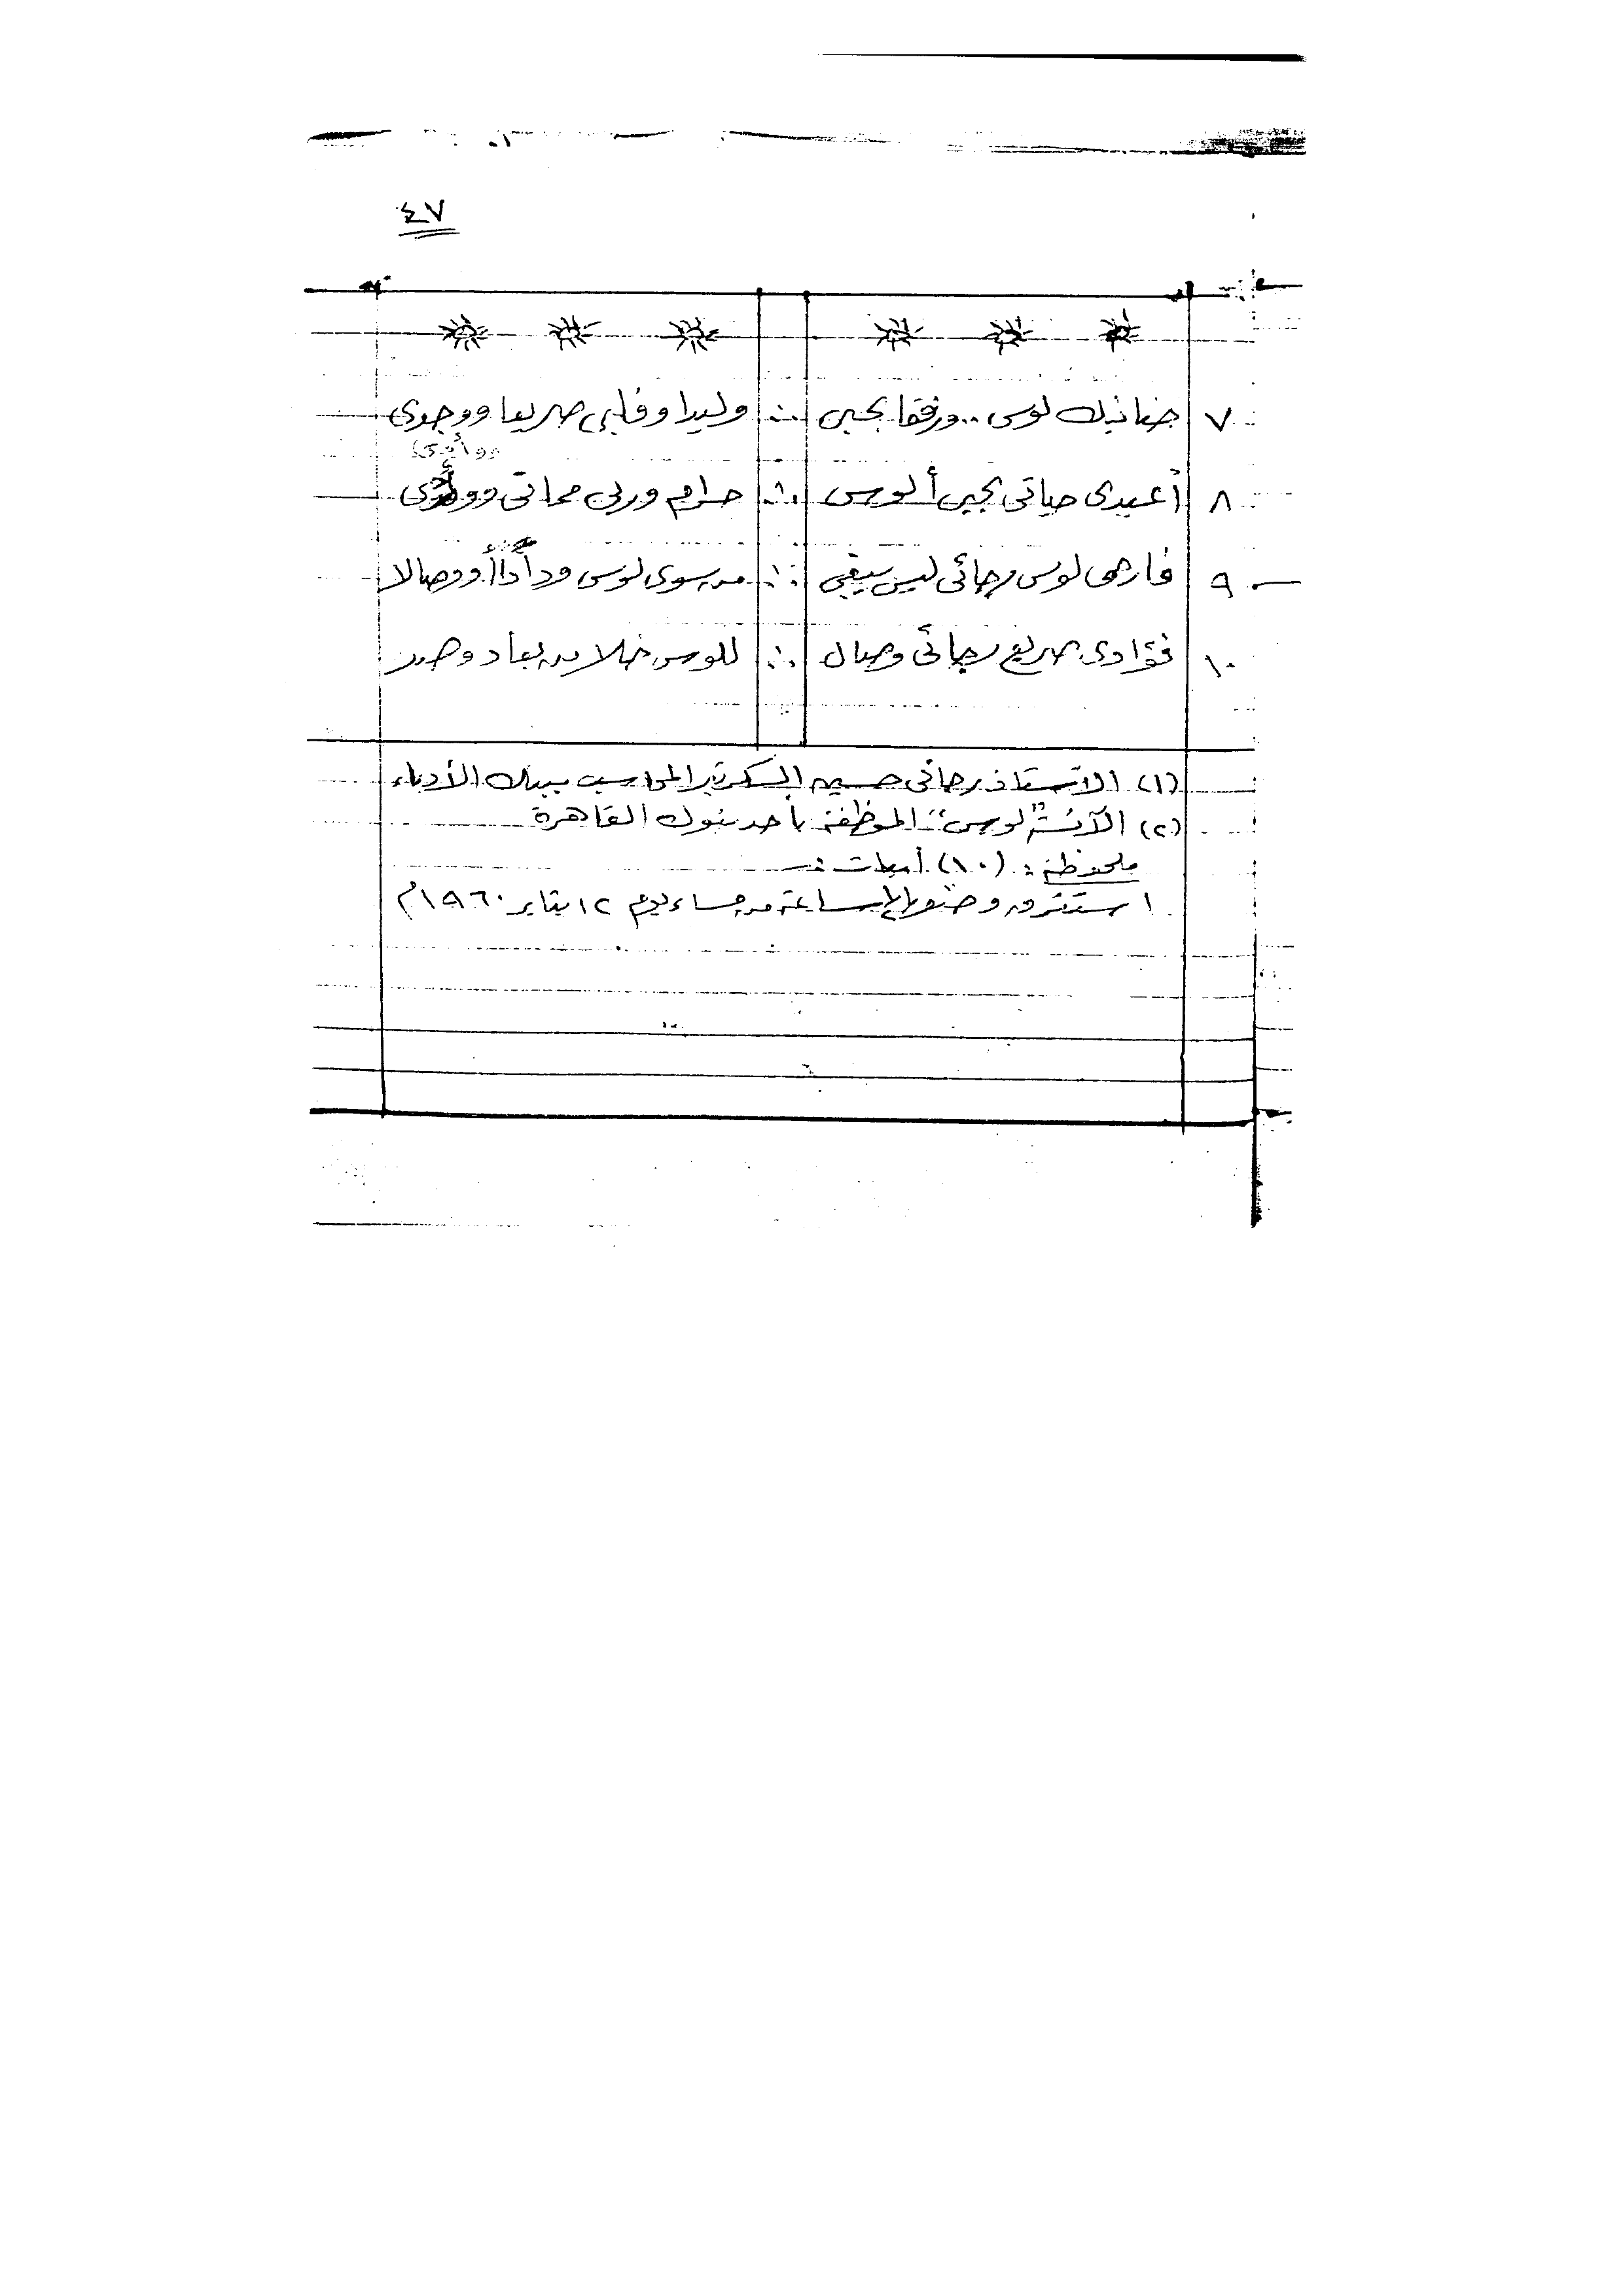 ٤٧
٧ حنانيك لوسى .. ورفقا بحبى ∴ وليدا وقلبى صريعا ووجدى
ووأدى
٨ أعيدى حياتى بحبى ألوسى ∴ حرام وربى مماتى ووأدى
٩ فارحمى لوسى رجائى ليس يبقى ∴ من سوى لوسى وداداً أو وصالا
١٠ فؤادى صريع رجائى وصال ∴ للوسى خلا من بعاد وصد
(١) الأستاذ رجائى حسين السكرتير المحاسب ببنك الأدباء
(٢) الآنسة "لوسى" الموظفة بأحد بنوك القاهرة
ملحوظة : (١٠) أبيات :
استغرق وضعها ساعة من مساء يوم ١٢ يناير ١٩٦٠م